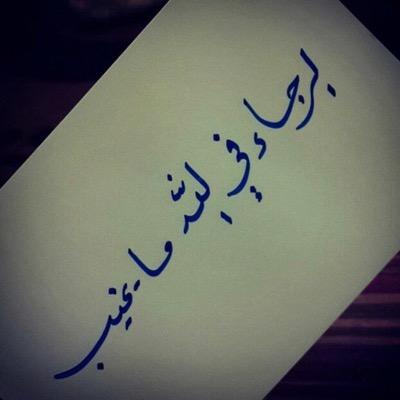 الرجاء في الله ما يخيب